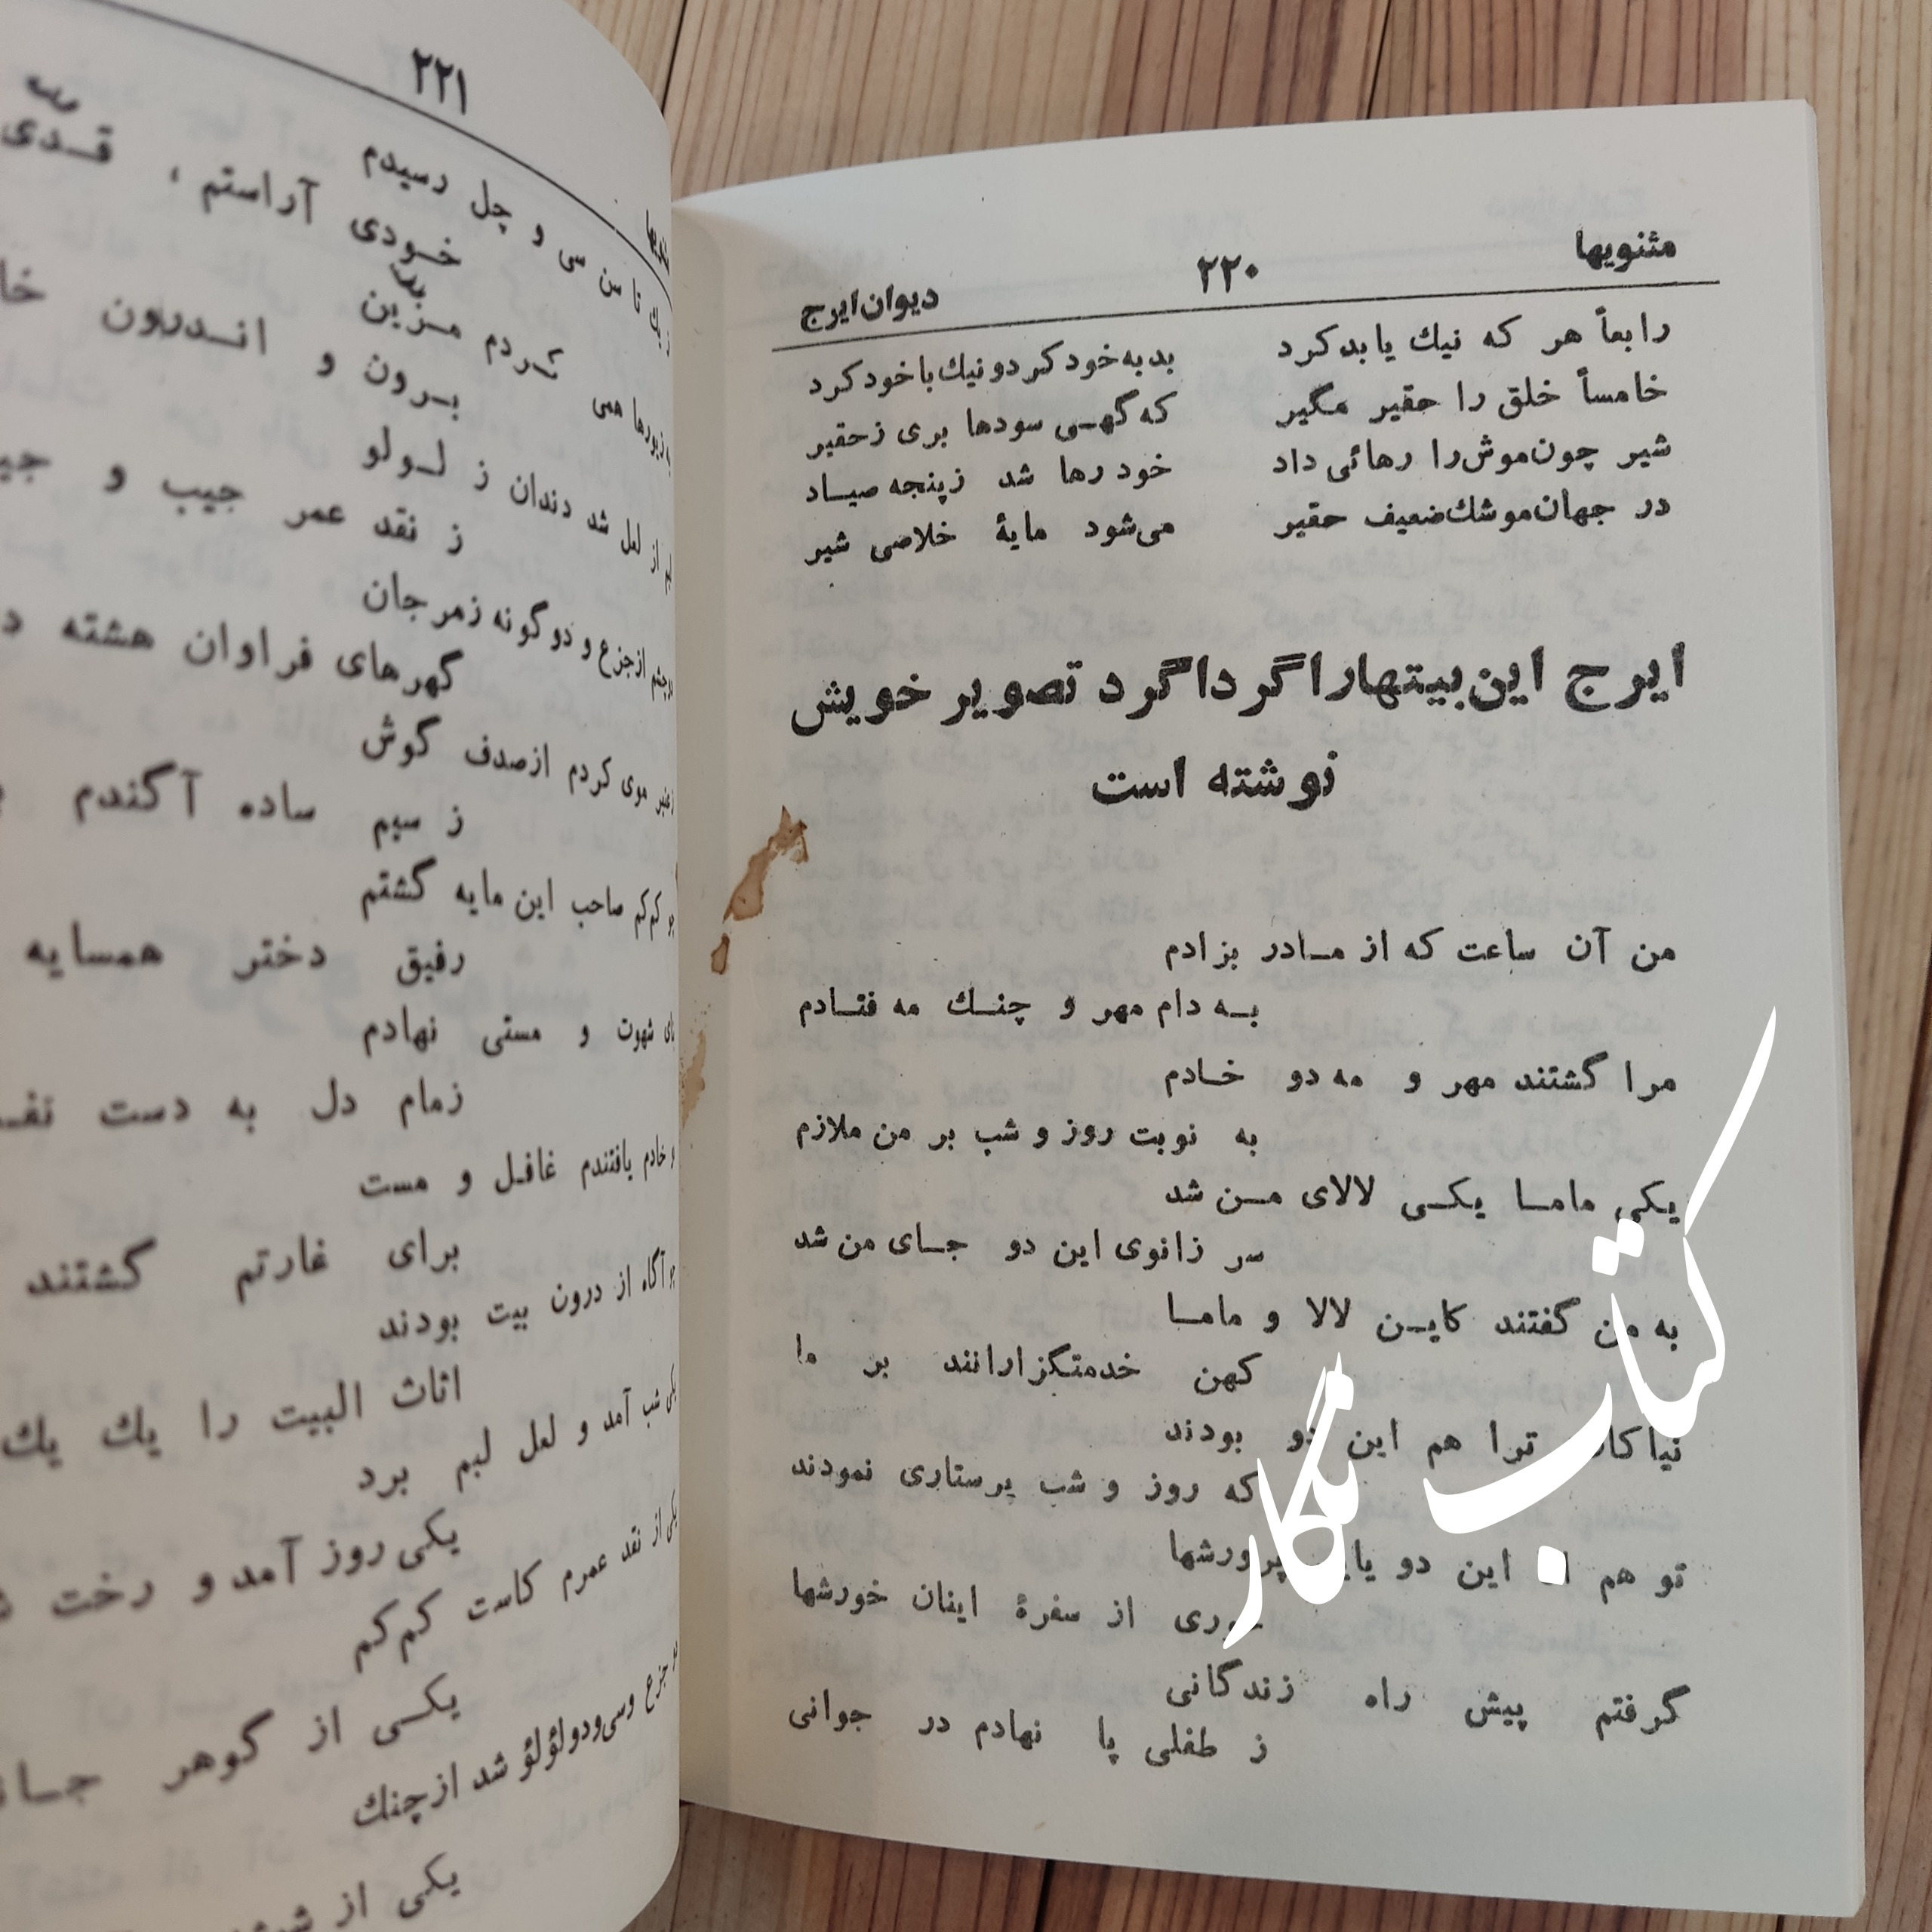 مثنویها
۲۲۰
دیوان ایرج
رابعاً هر که نیك یا بد کرد
بد به خود کرد و نیك با خود کرد
خامساً خلق را حقیر مگیر
که گهی سودها بری ز حقیر
شیر چون موش را رهائی داد
خود رها شد ز پنجه صیاد
در جهان موشك ضعیف حقیر
می‌شود مایهٔ خلاصی شیر
ایرج این بیتها را گرداگرد تصویر خویش
نوشته است
من آن ساعت که از مادر بزادم
به دام مهر و چنك مه فتادم
مرا گشتند مهر و مه دو خادم
به نوبت روز و شب بر من ملازم
یکی ماما یکی لالای من شد
سر زانوی این دو جای من شد
به من گفتند کاین لالا و ماما
کهن خدمتگزارانند بر ما
ترا هم این دو بودند
که روز و شب پرستاری نمودند
تو هم این دو پرورشها
از سفرهٔ اینان خورشها
گرفتم پیش راه زندگانی
ز طفلی پا نهادم در جوانی
کتاب نگار
۲۲۱
تا سن سی و چل رسیدم
خودی آراستم، قدی
زیورها همی کردم مزین
برون و اندرون
از لعل شد دندان ز لولو
ز نقد عمر جیب و
از جزع و دو گونه ز مرجان
گهرهای فراوان هشته
موی کردم از صدف گوش
ز سیم ساده آگندم
کم‌کم صاحب این مایه گشتم
رفیق دختر همسایه
شهوت و مستی نهادم
زمام دل به دست
خادم یافتندم غافل و مست
برای غارتم گشتند
آگاه از درون بیت بودند
اثاث البیت را یك یك
شب آمد و لعل لبم برد
یکی روز آمد و رخت
از نقد عمرم کاست کم‌کم
یکی از گوهر
جزع و سی‌و‌دو لؤلؤ شد از چنك
یکی از